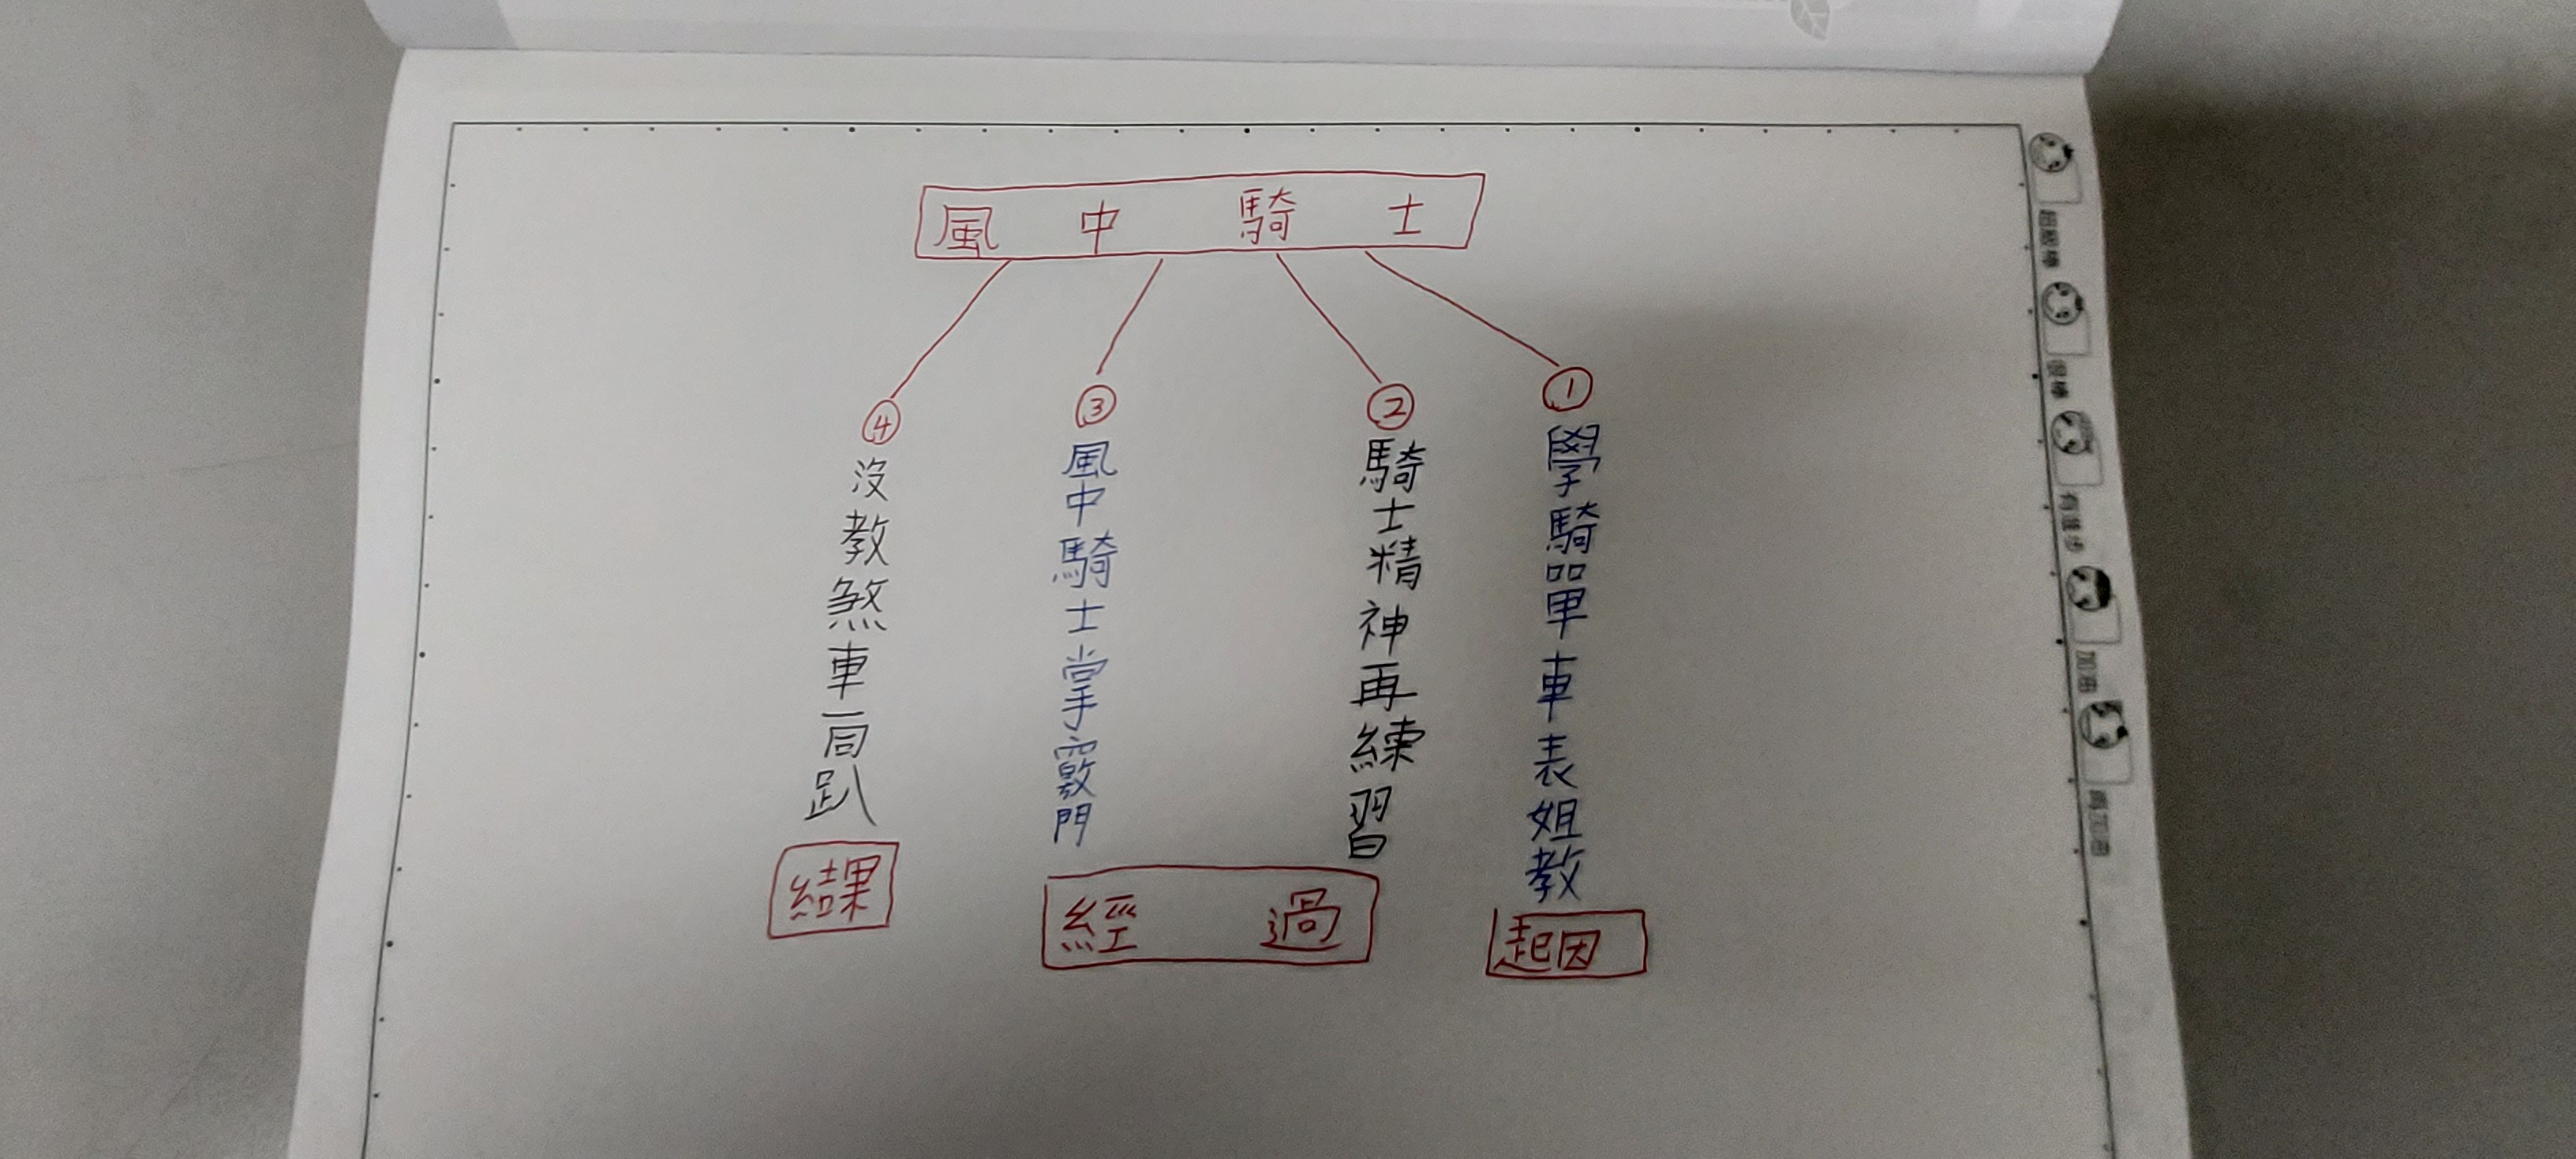 風中騎士
①
學騎單車表姐教
起因
②
騎士精神再練習
③
風中騎士掌竅門
經過
④
沒教煞車一同趴
結果
超級棒
很棒
有進步
加油
再加油